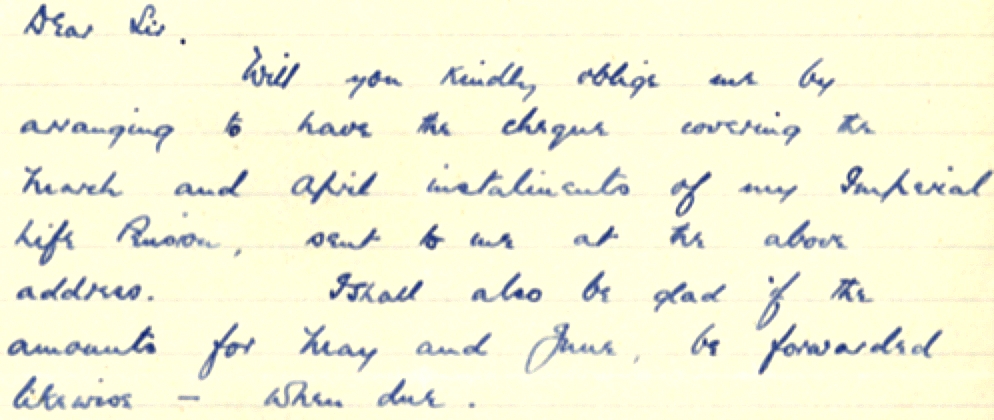 Dear Sir.
Will you kindly oblige me by
arranging to have the cheque covering the
March and April instalments of my Imperial
Life Pension, sent to me at the above
address. I shall also be glad if the
amounts for May and June, be forwarded
likewise – when due.